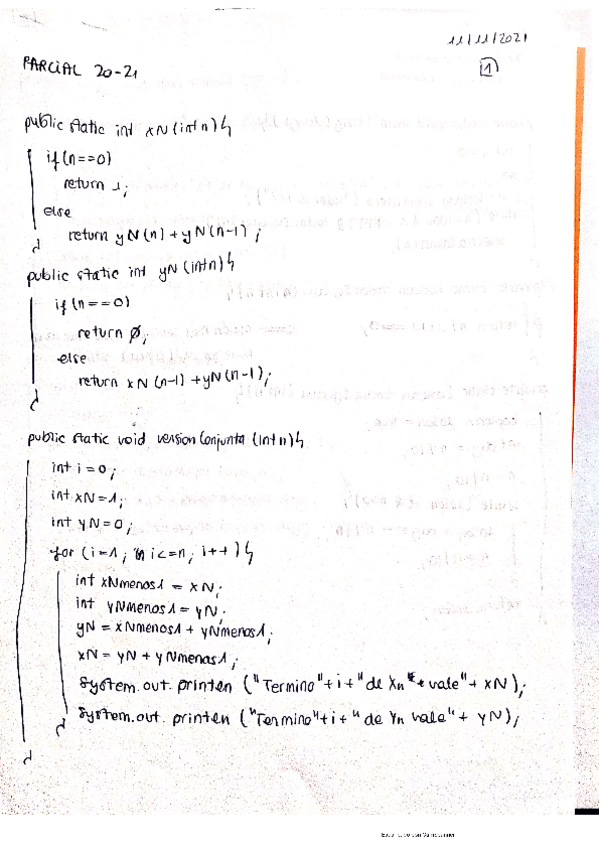 11/11/2021
PARCIAL 20-21
1
public static int xN (int n) {
if (n==0)
return 1;
else
return yN(n) + yN(n-1);
}
public static int yN (int n) {
if (n==0)
return 0;
else
return xN(n-1) + yN(n-1);
}
public static void versionConjunta (int n) {
int i=0;
int xN=1;
int yN=0;
for (i=1; i<=n; i++) {
int xNmenos1 = xN;
int yNmenos1 = yN;
yN = xNmenos1 + yNmenos1;
xN = yN + yNmenos1;
System.out.printen ("Termino"+i+"de Xn vale"+ xN);
System.out.printen ("Termino"+i+"de Yn vale"+ yN);
}
}